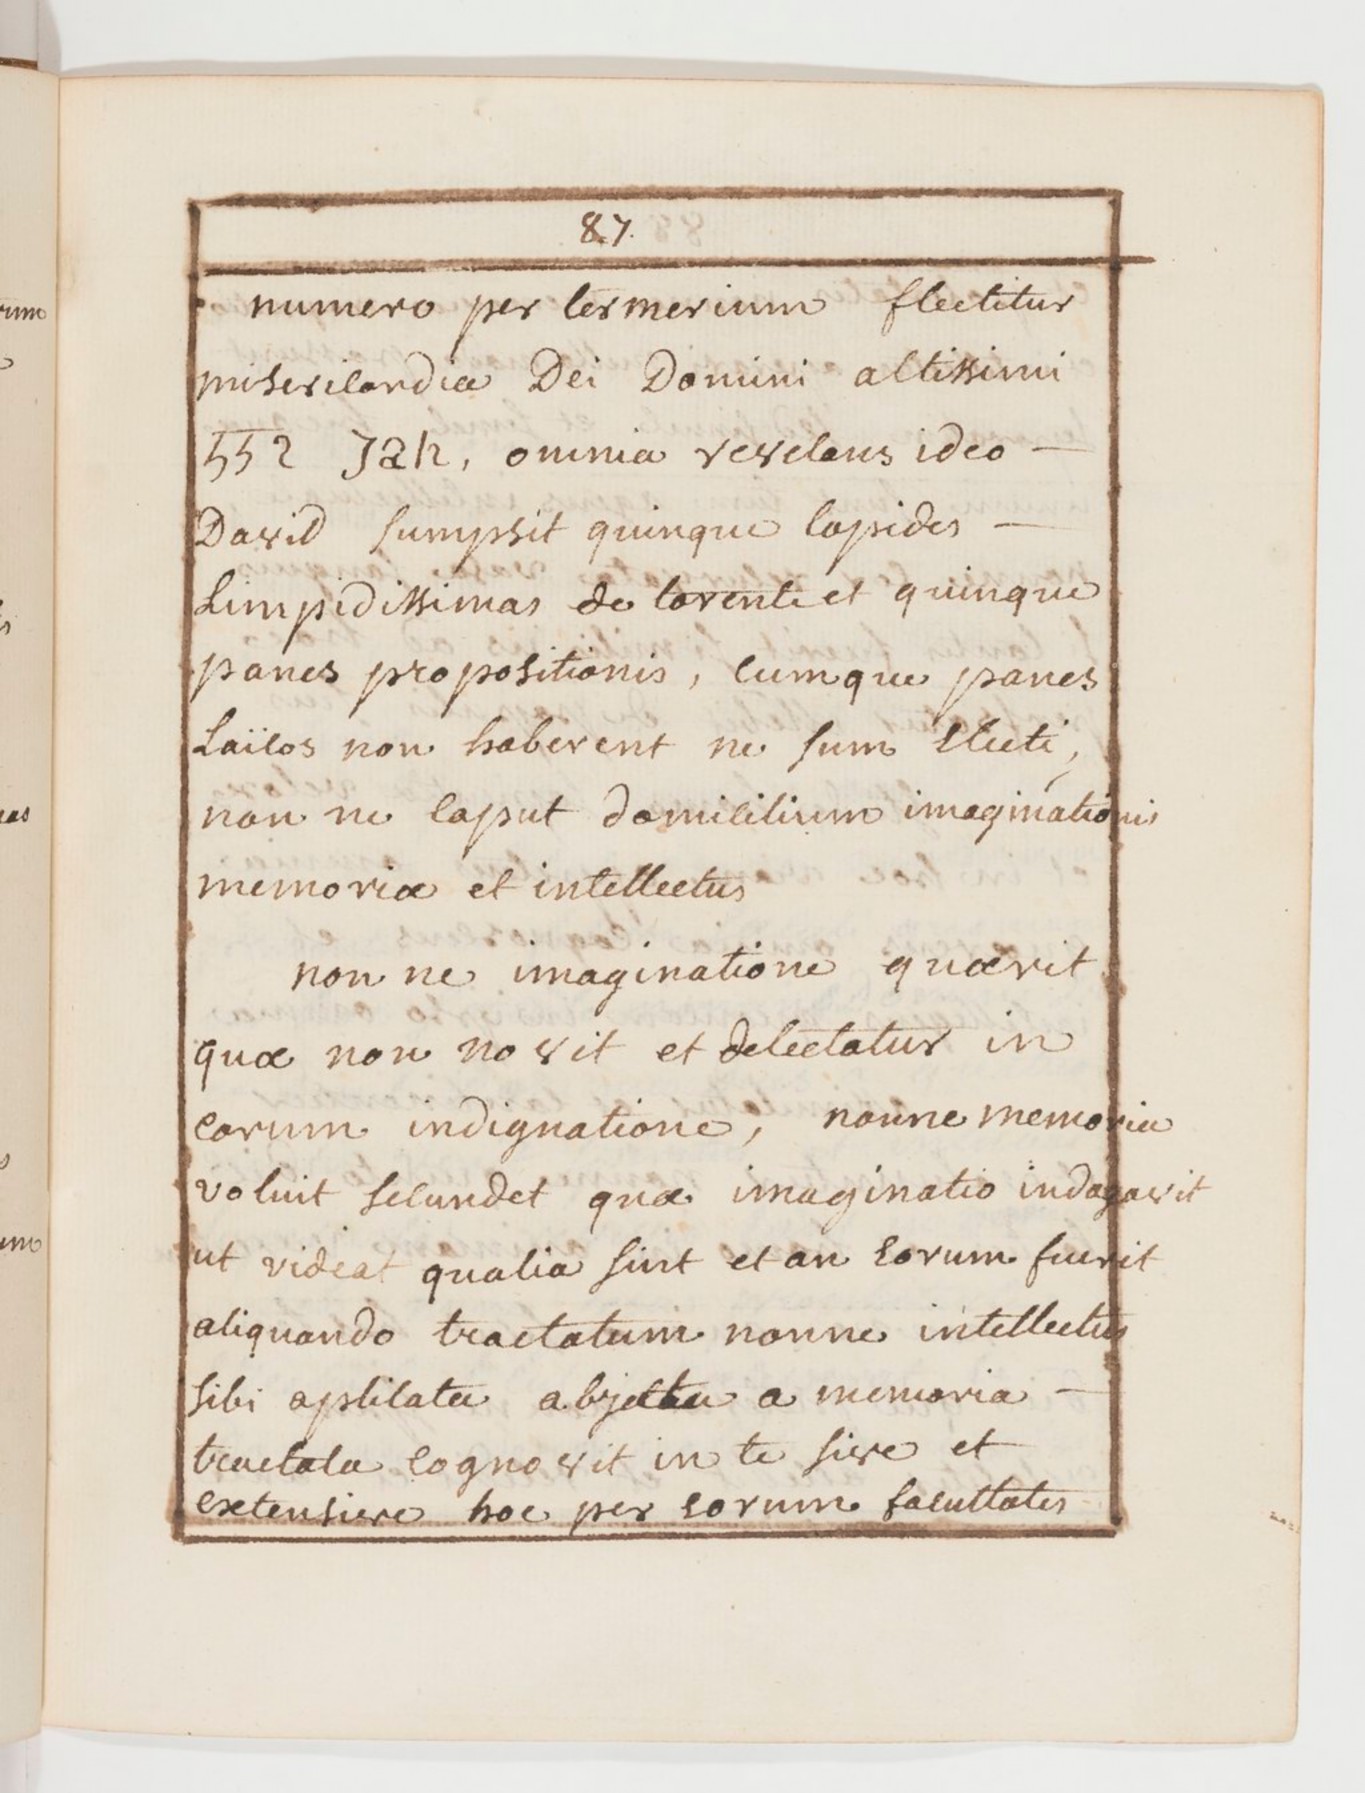 87.
numero per termerium flectitur
misericordia Dei Domini altissimi
552 Jah, omnia revelans ideo —
David sumpsit quinque lapides —
Limpidissimas de torente et quinque
panes propositionis, cumque panes
Laïcos non haberent ne sum Electi,
non ne caput domicilium imaginationis
memoriæ et intellectus
non ne imaginatione quærit
quæ non novit et delectatur in
eorum indignatione, nonne memoria
voluit secundet quæ imaginatio indagavit
ut videat qualia sint et an eorum fuerit
aliquando tractatum nonne intellectus
sibi abjecta a memoria —
tractata cognovit in te sive et
extensive hoc per eorum facultates
rum
nas